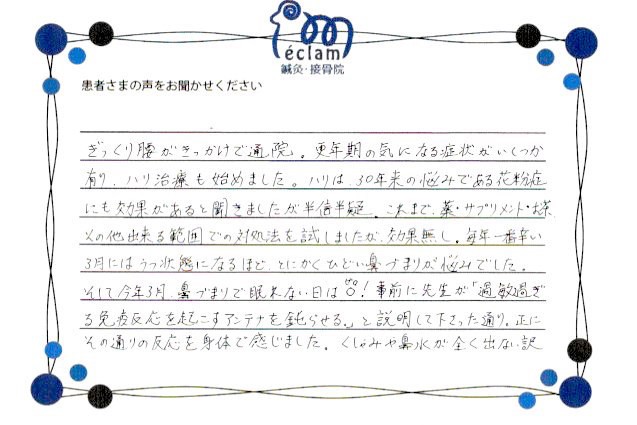 éclam
鍼灸・接骨院
患者さまの声をお聞かせください
ぎっくり腰がきっかけで通院。更年期の気になる症状がいくつか
有り、ハリ治療も始めました。ハリは、30年来の悩みである花粉症
にも効果があると聞きましたが半信半疑。これまで、薬・サプリメント・お茶
その他出来る範囲での対処法を試しましたが、効果無し。毎年一番辛い
3月にはうつ状態になるほど、とにかくひどい鼻づまりが悩みでした。
そして今年3月、鼻づまりで眠れない日はゼロ!事前に先生が「過敏過ぎ
る免疫反応を起こすアンテナを鈍らせる。」と説明して下さった通り、正に
その通りの反応を身体で感じました。くしゃみや鼻水が全く出ない訳